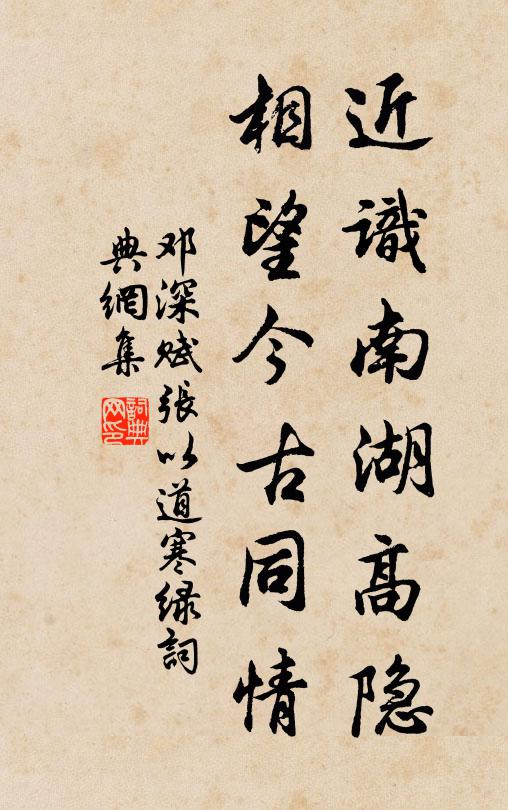 近識南湖高隐
相望今古同情
邓深赋張以道寒绿詞
典網集
詞典网印